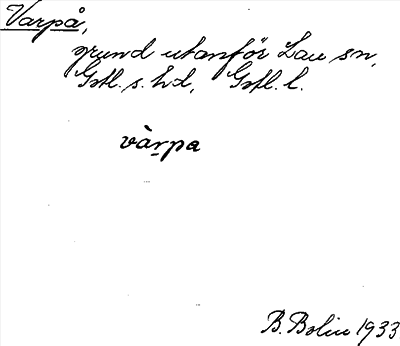 Varpå,
grund utanför Lau sn,
Gotl. s. hd, Gotl. l.
vàrpa
B. Bolin 1933